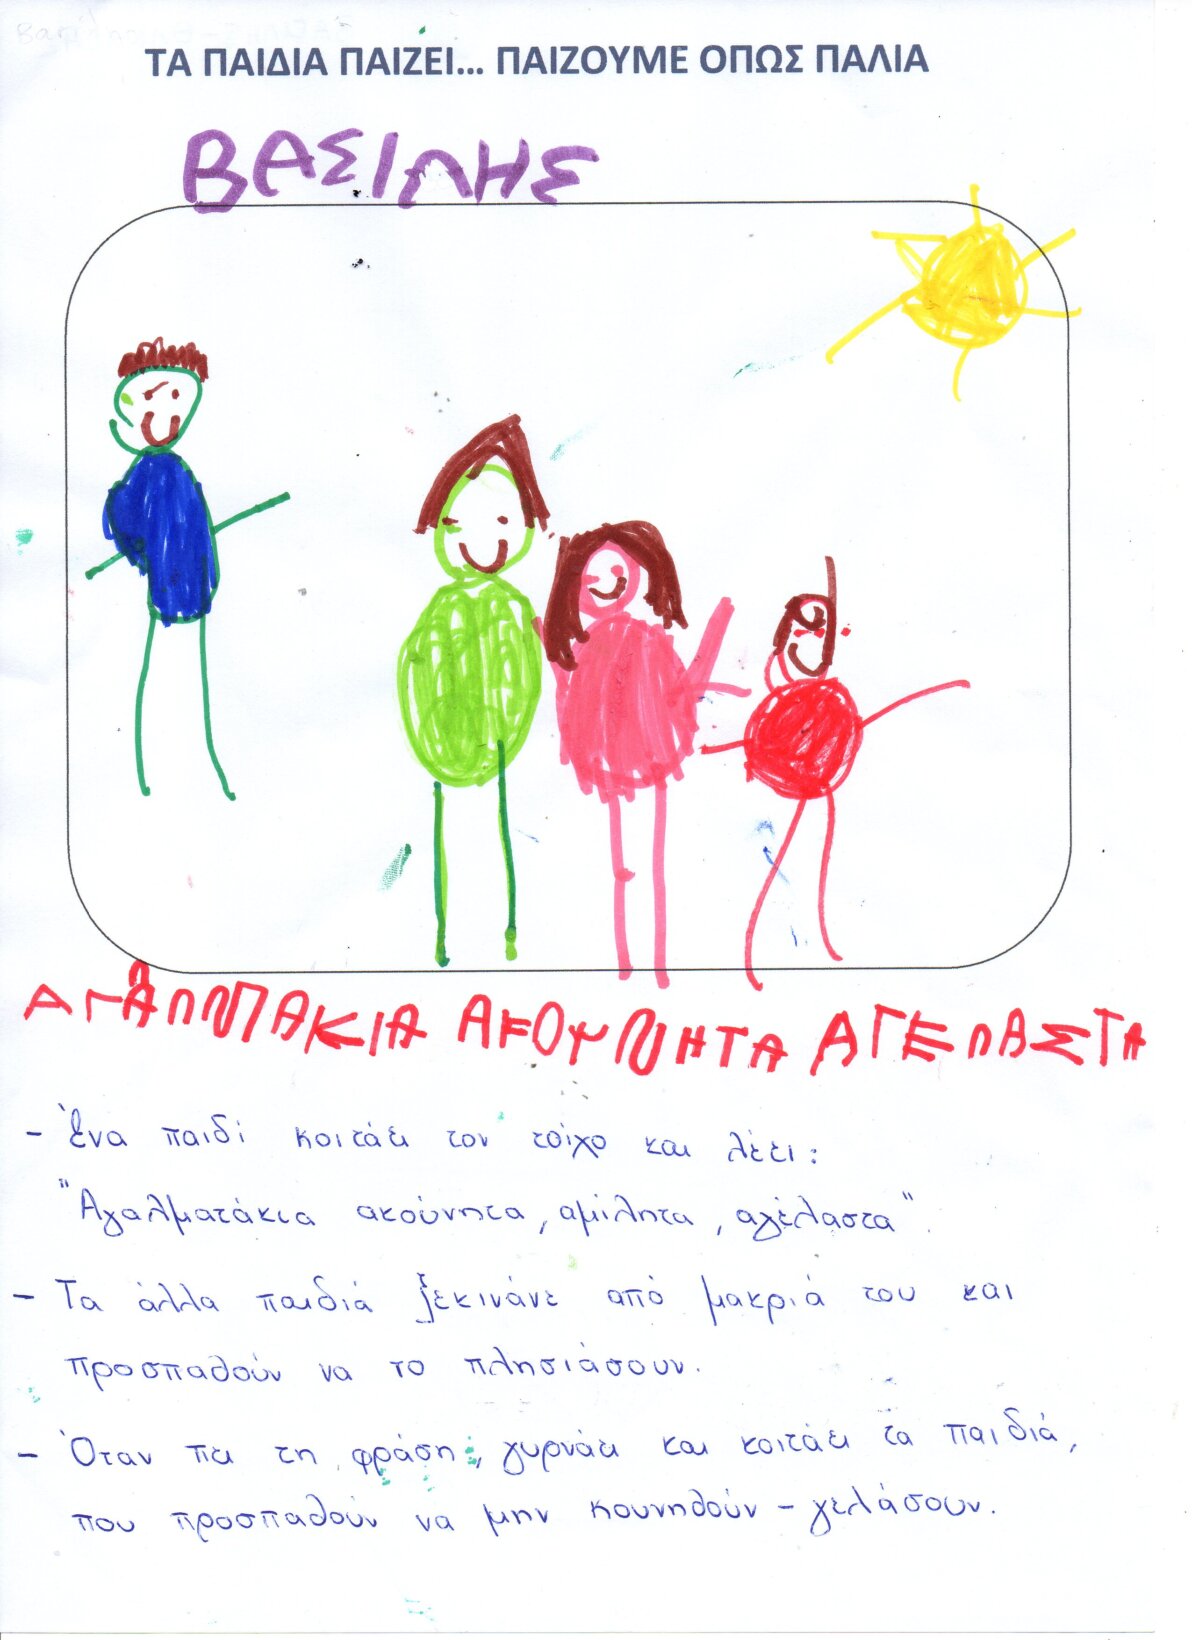 ΤΑ ΠΑΙΔΙΑ ΠΑΙΖΕΙ... ΠΑΙΖΟΥΜΕ ΟΠΩΣ ΠΑΛΙΑ
ΒΑΣΙΛΗΣ
ΑΚΟΥΝΗΤΑ ΑΓΕΛΑΣΤΑ
- Ένα παιδί κοιτάει τον τοίχο και λέει:
"Αγαλματάκια ακούνητα, αμίλητα, αγέλαστα".
- Τα άλλα παιδιά ξεκινάνε από μακριά του και
προσπαθούν να το πλησιάσουν.
- Όταν πει τη φράση, γυρνάει και κοιτάει τα παιδιά,
που προσπαθούν να μην κουνηθούν - γελάσουν.